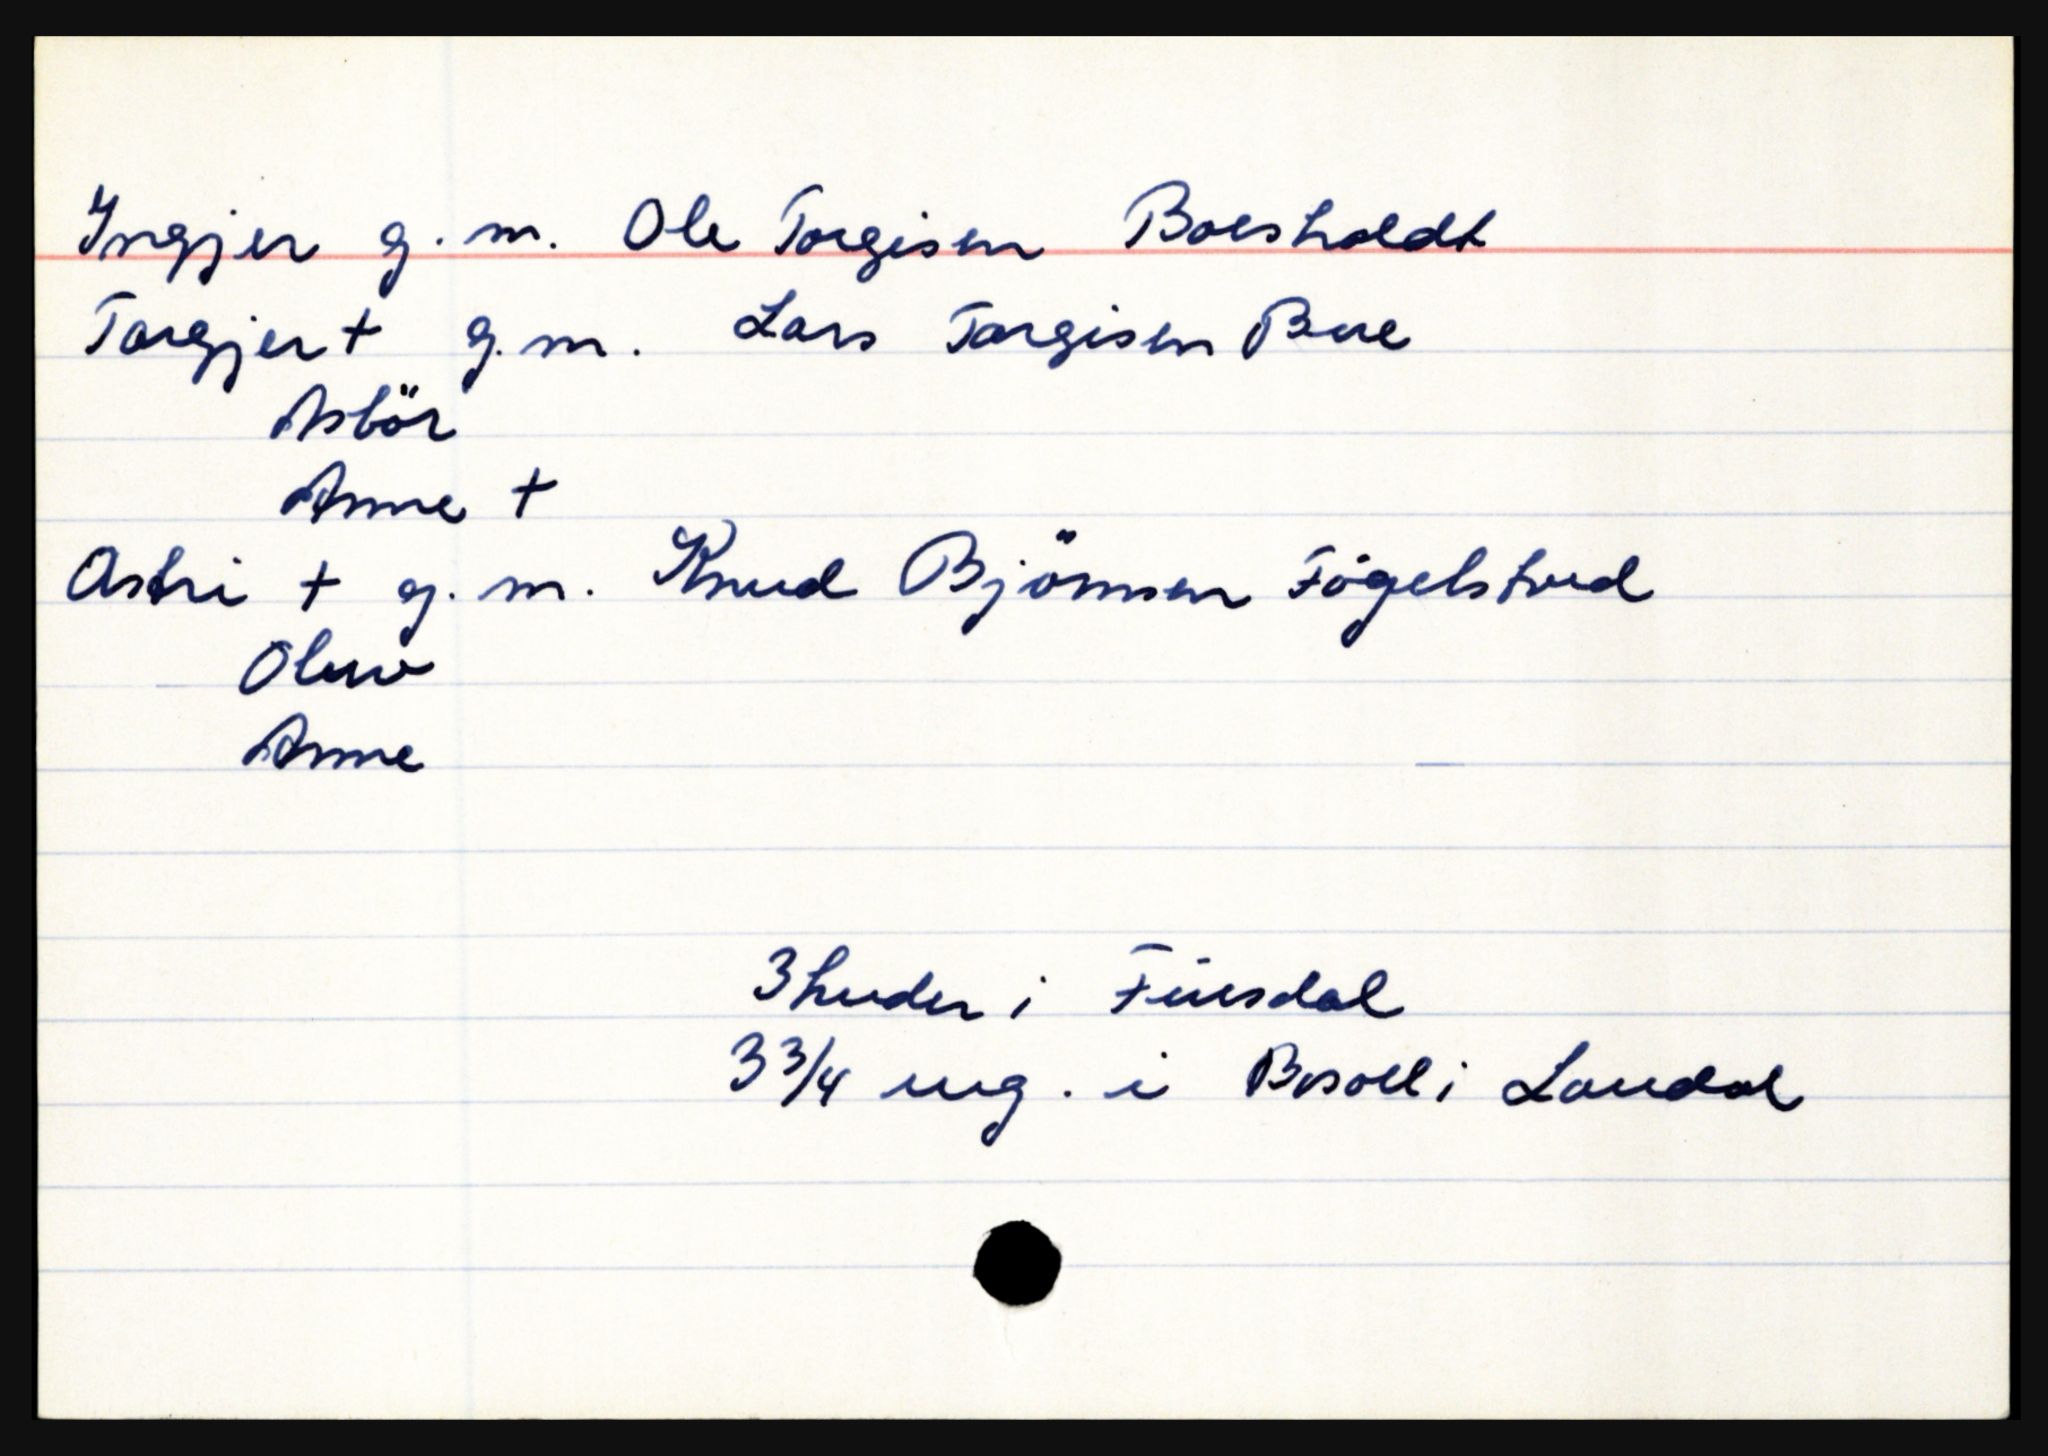 Ingjer g. m. Ole Torgisen Boesholdt
Torgjer + g. m. Lars Torgisen Bue
Asbör
Anne +
Astri + g. m. Knud Björnsen Fögelstved
Oluv
Anne
3 huder i Fiirsdal
3 3/4 ung. i i Laudal